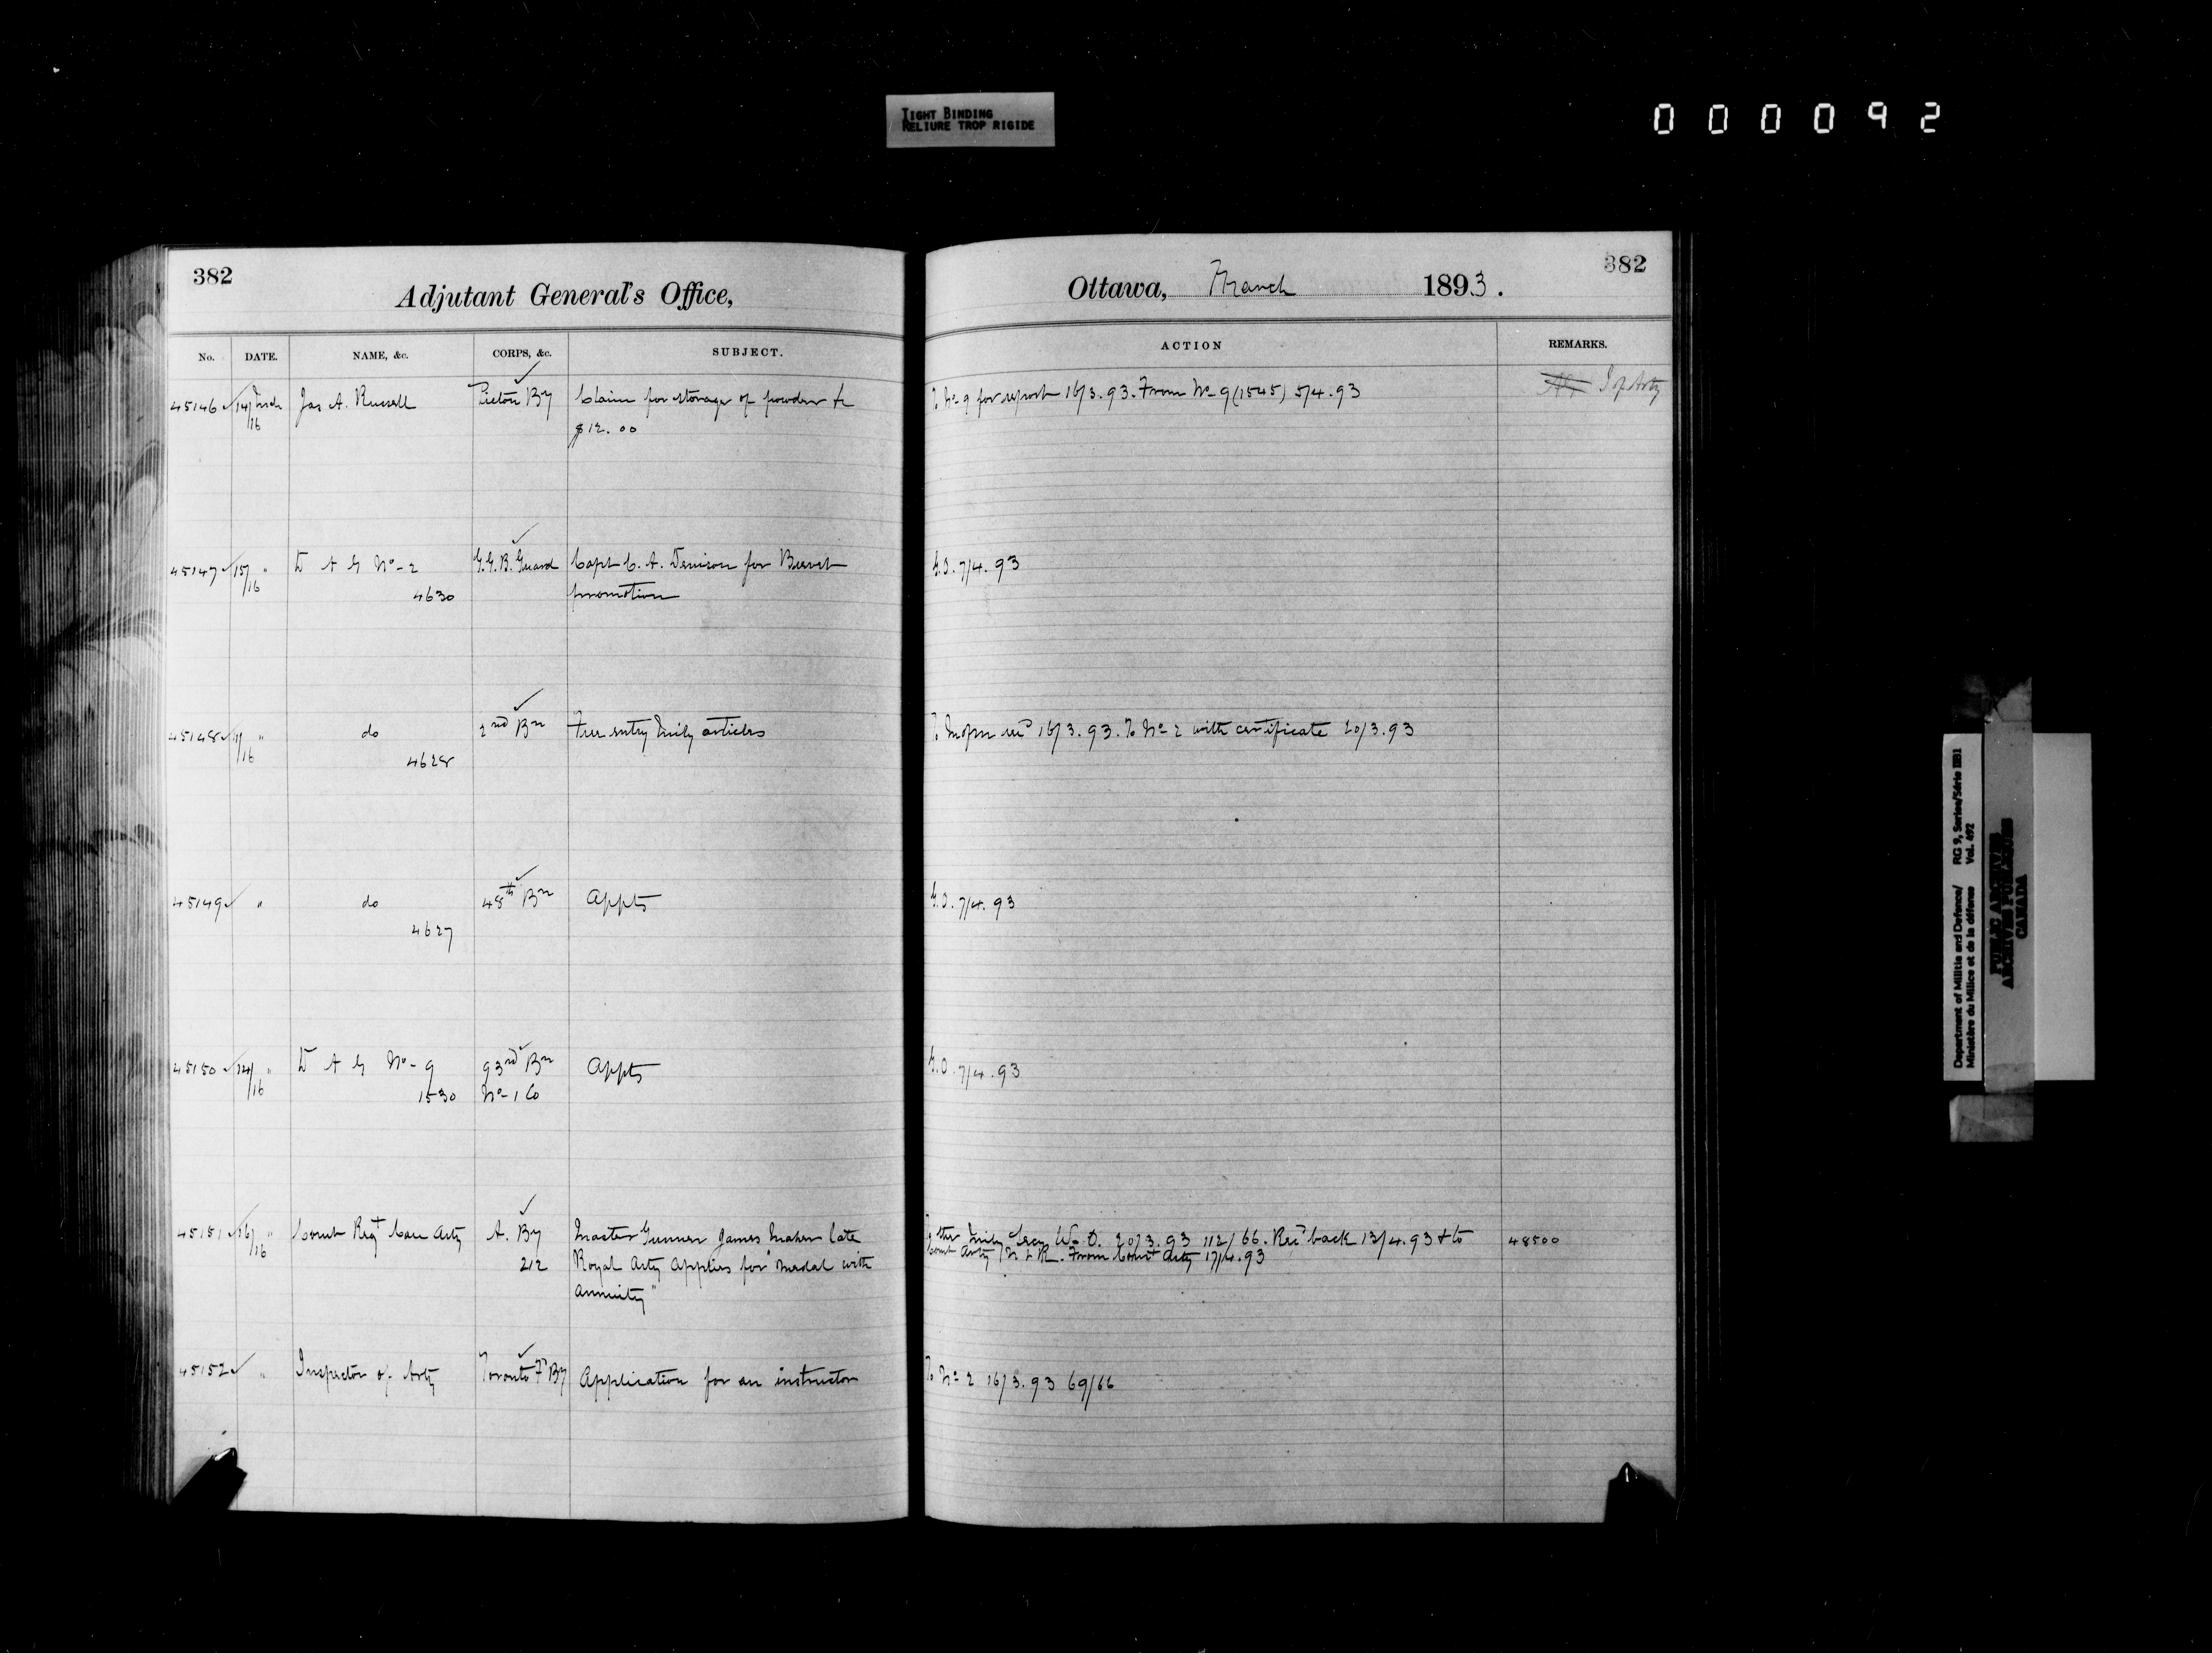 TIGHT BINDING
RELIURE TROP RIGIDE
000092
382
Adjutant General's Office,
No. DATE. NAME, &c. CORPS, &c. SUBJECT.
45146 14/16 March Jas A. Russell Pictou By Claim for storage of powder &c
$12.00
45147 15/16 " D A G No-2 G.G.B. Guard Capt C. A. Denison for Brevet
4630 promotion
45148 "/16 " do 2nd Bn Free entry Mily articles
4628
45149 " do 48th Bn Appts
4627
45150 14/16 " D A G No-9 93rd Bn Appts
1530 No-1 Co
45151 16/16 " Comt Regt Can Arty A. By Master Gunner James Maher late
212 Royal Arty applies for "medal with
annuity"
45152 " Inspector of Arty Toronto Fd By Application for an instructor
382
Ottawa, March 1893.
ACTION REMARKS.
To No 9 for report 16/3.93. From No 9 (1545) 5/4.93 I of Arty
G.O. 7/4.93
16/3.93. To No 2 with certificate 20/3.93
G.O. 7/4.93
G.O. 7/4.93
Mily Secy W.O. 20/3.93 112/66. Recd back 13/4.93 & to 48500
Comt Arty N & R. From Comt Arty 17/4.93
To No 2 16/3.93 69/66
Department of Militia and Defence/ RG 9, Series/Série IIB1
Ministère du Milice et de la défense Vol. 692
PUBLIC ARCHIVES
ARCHIVES PUBLIQUES
CANADA